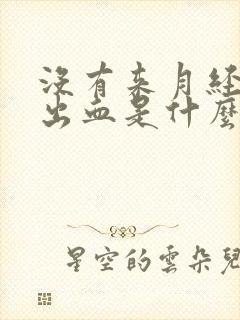 沒有来月经
出血是什麼
星空的雲朵兒